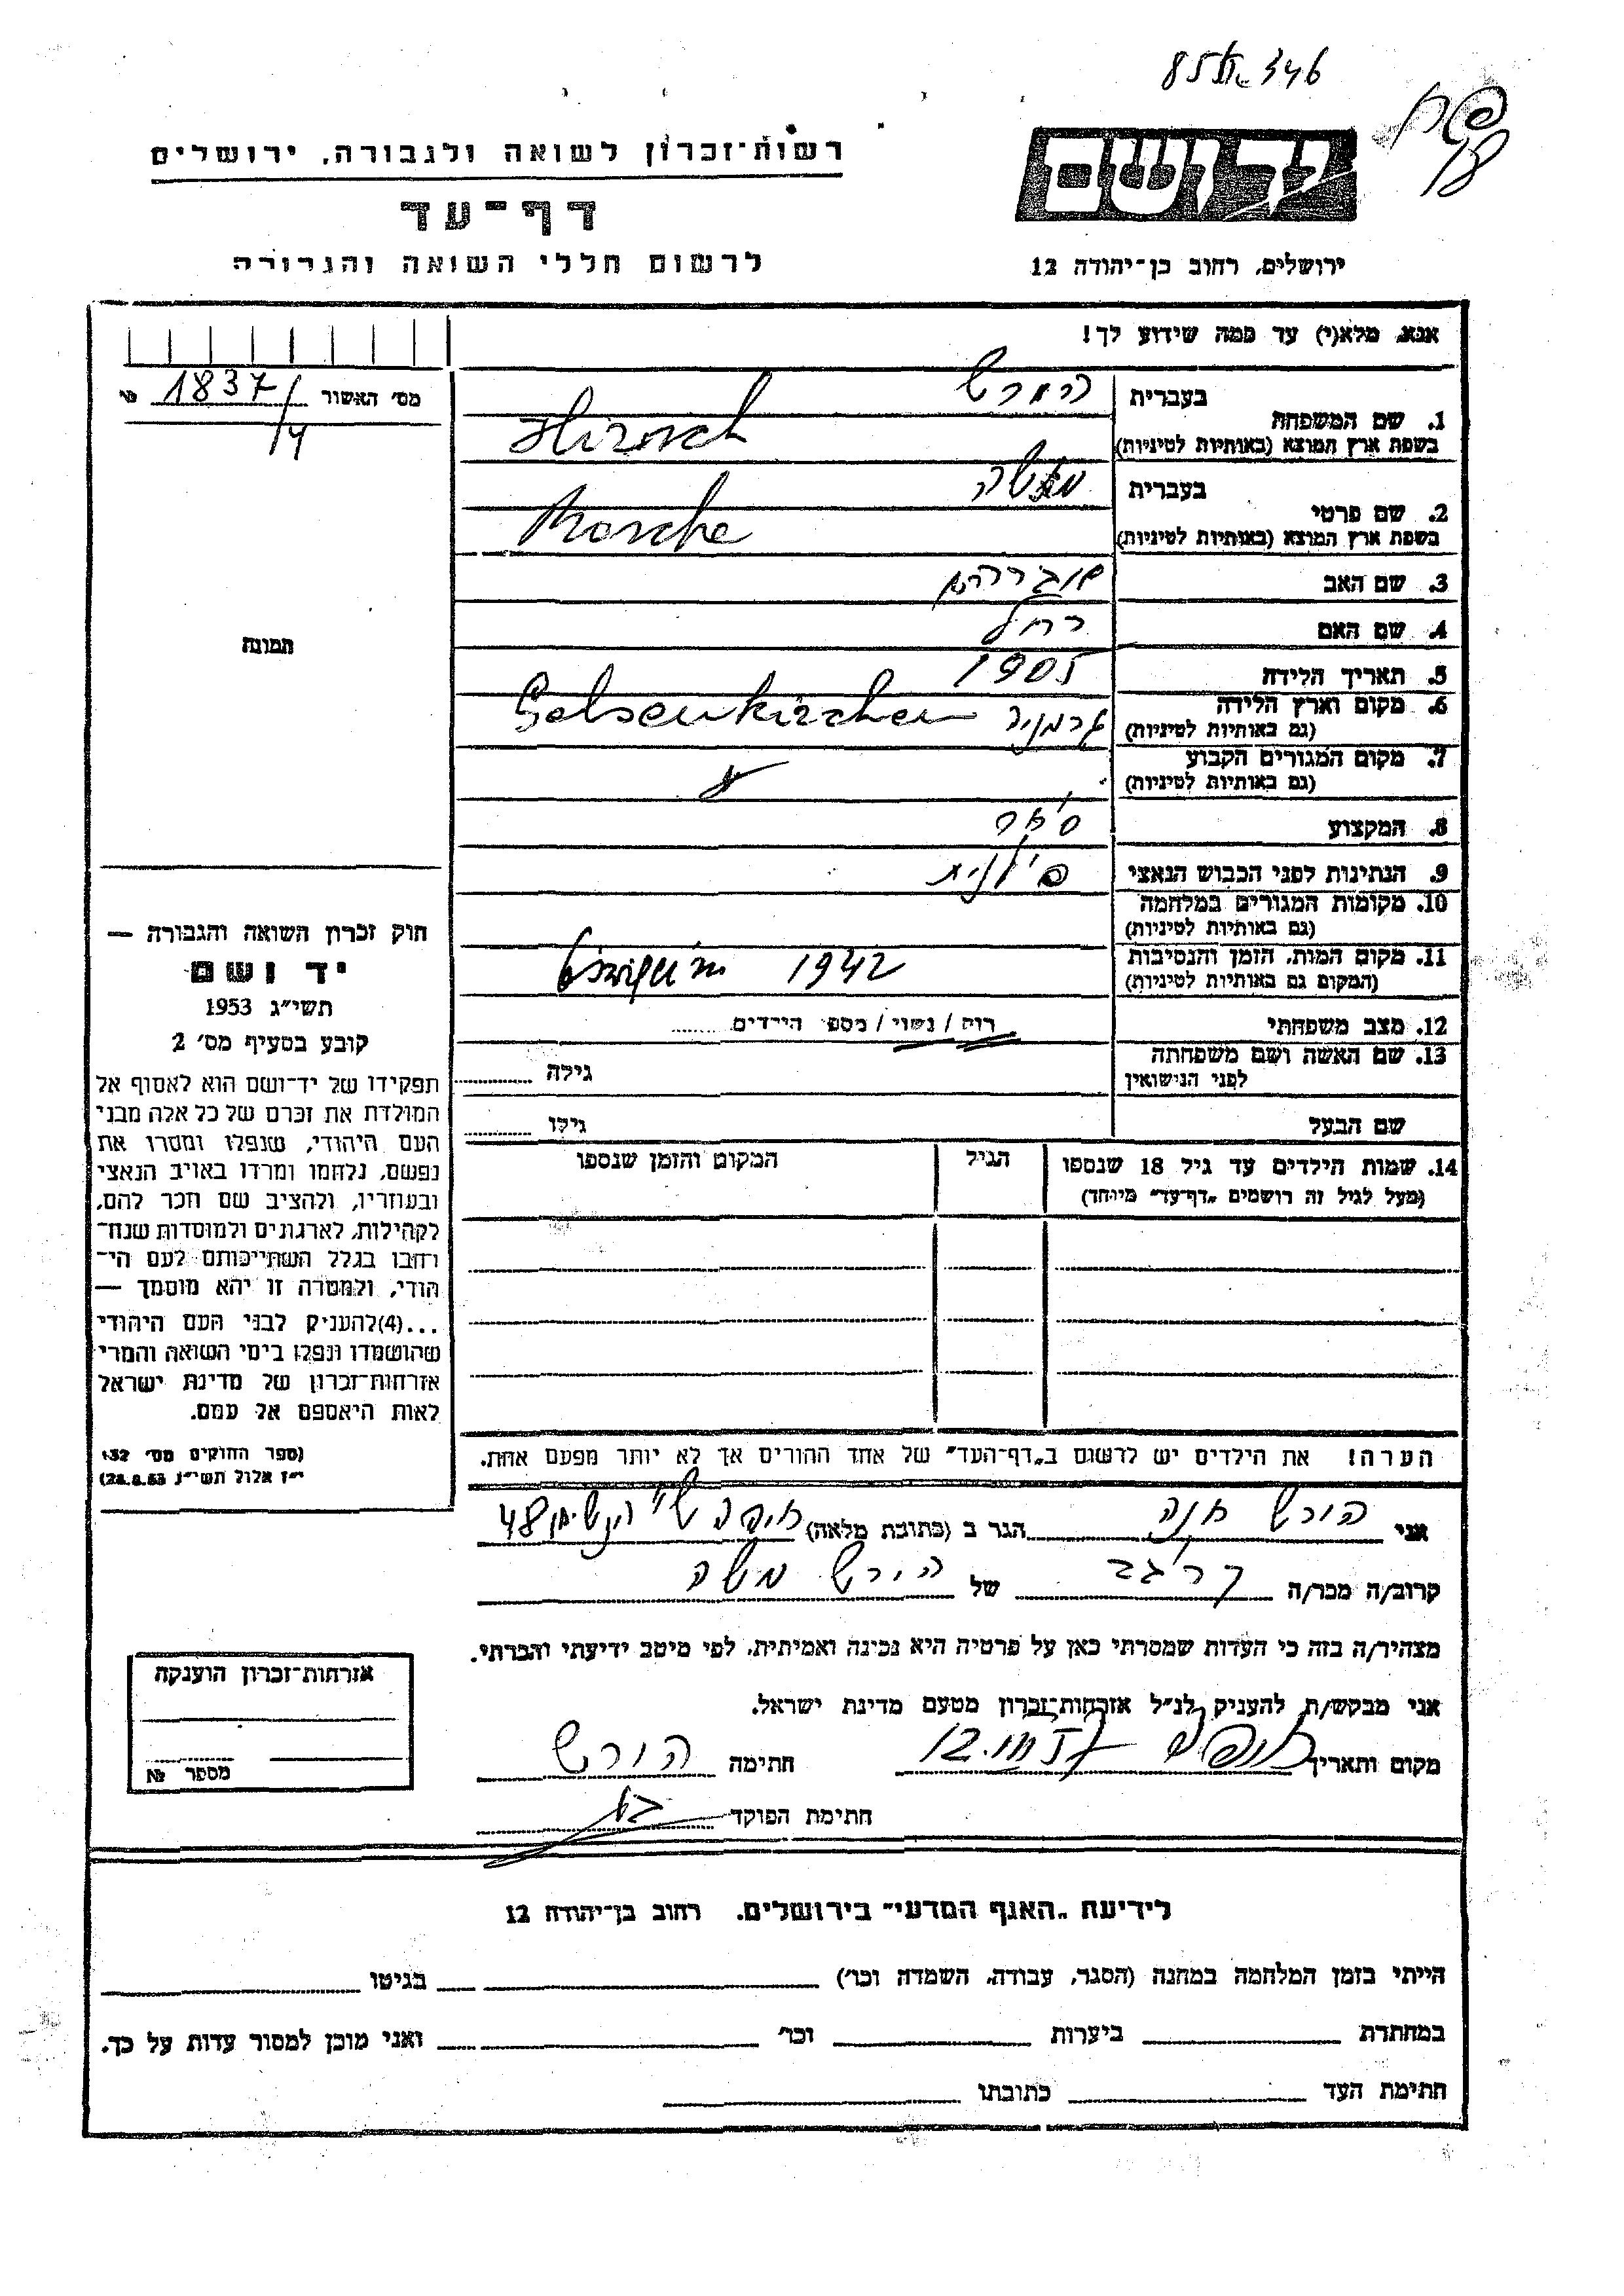 346
רשות-זכרון לשואה ולגבורה, ירושלים
דף-עד
לרשום חללי השואה והגבורה
יד ושם
ירושלים, רחוב בן-יהודה 12
אנא, מלא(י) עד כמה שידוע לך!
מס' האשור 1837/ №
4
תמונה
1. שם המשפחה
בעברית הירש
בשפת ארץ המוצא (באותיות לטיניות) Hirsch
2. שם פרטי
בעברית משה
בשפת ארץ המוצא (באותיות לטיניות) Mosche
3. שם האב
4. שם האם רחל
5. תאריך הלידה 1905
6. מקום וארץ הלידה
(גם באותיות לטיניות) גרמניה Gelsenkirchen
7. מקום המגורים הקבוע
(גם באותיות לטיניות)
8. המקצוע
9. הנתינות לפני הכבוש הנאצי
10. מקומות המגורים במלחמה
(גם באותיות לטיניות)
11. מקום המות, הזמן והנסיבות
(המקום גם באותיות לטיניות) 1942
12. מצב משפחתי רוק / נשוי / מספר הילדים
13. שם האשה ושם משפחתה
לפני הנישואין גילה
שם הבעל גילו
14. שמות הילדים עד גיל 18 שנספו
(מעל לגיל זה רושמים „דף-עד" מיוחד)
הגיל
המקום והזמן שנספו
חוק זכרון השואה והגבורה —
יד ושם
תשי"ג 1953
קובע בסעיף מס' 2
תפקידו של יד-ושם הוא לאסוף אל
המולדת את זכרם של כל אלה מבני
העם היהודי, שנפלו ומסרו את
נפשם, נלחמו ומרדו באויב הנאצי
ובעוזריו, ולהציב שם וזכר להם,
לקהילות, לארגונים ולמוסדות שנח-
רחבו בגלל השתייכותם לעם הי-
הודי, ולמטרה זו יהא מוסמך —
...(4)להעניק לבני העם היהודי
שהושמדו ונפלו בימי השואה והמרי
אזרחות-זכרון של מדינת ישראל
לאות היאספם אל עמם.
(ספר החוקים מס' 132
י"ז אלול תשי"ג 28.8.53)
הערה! את הילדים יש לרשום ב„דף-העד" של אחד ההורים אך לא יותר מפעם אחת.
אני הירש חנה הגר ב (כתובת מלאה) חיפה 48
קרוב/ה מכר/ה של הירש משה
מצהיר/ה בזה כי העדות שמסרתי כאן על פרטיה היא נכונה ואמיתית, לפי מיטב ידיעתי והכרתי.
אני מבקש/ת להעניק לנ"ל אזרחות-זכרון מטעם מדינת ישראל.
מקום ותאריך חיפה 12. חתימה הירש
חתימת הפוקד
אזרחות-זכרון הוענקה
מספר №
לידיעת „האגף המדעי" בירושלים, רחוב בן-יהודה 12
הייתי בזמן המלחמה במחנה (הסגר, עבודה, השמדה וכו') בגיטו
במחתרת ביערות וכו' ואני מוכן למסור עדות על כך.
חתימת העד כתובתו